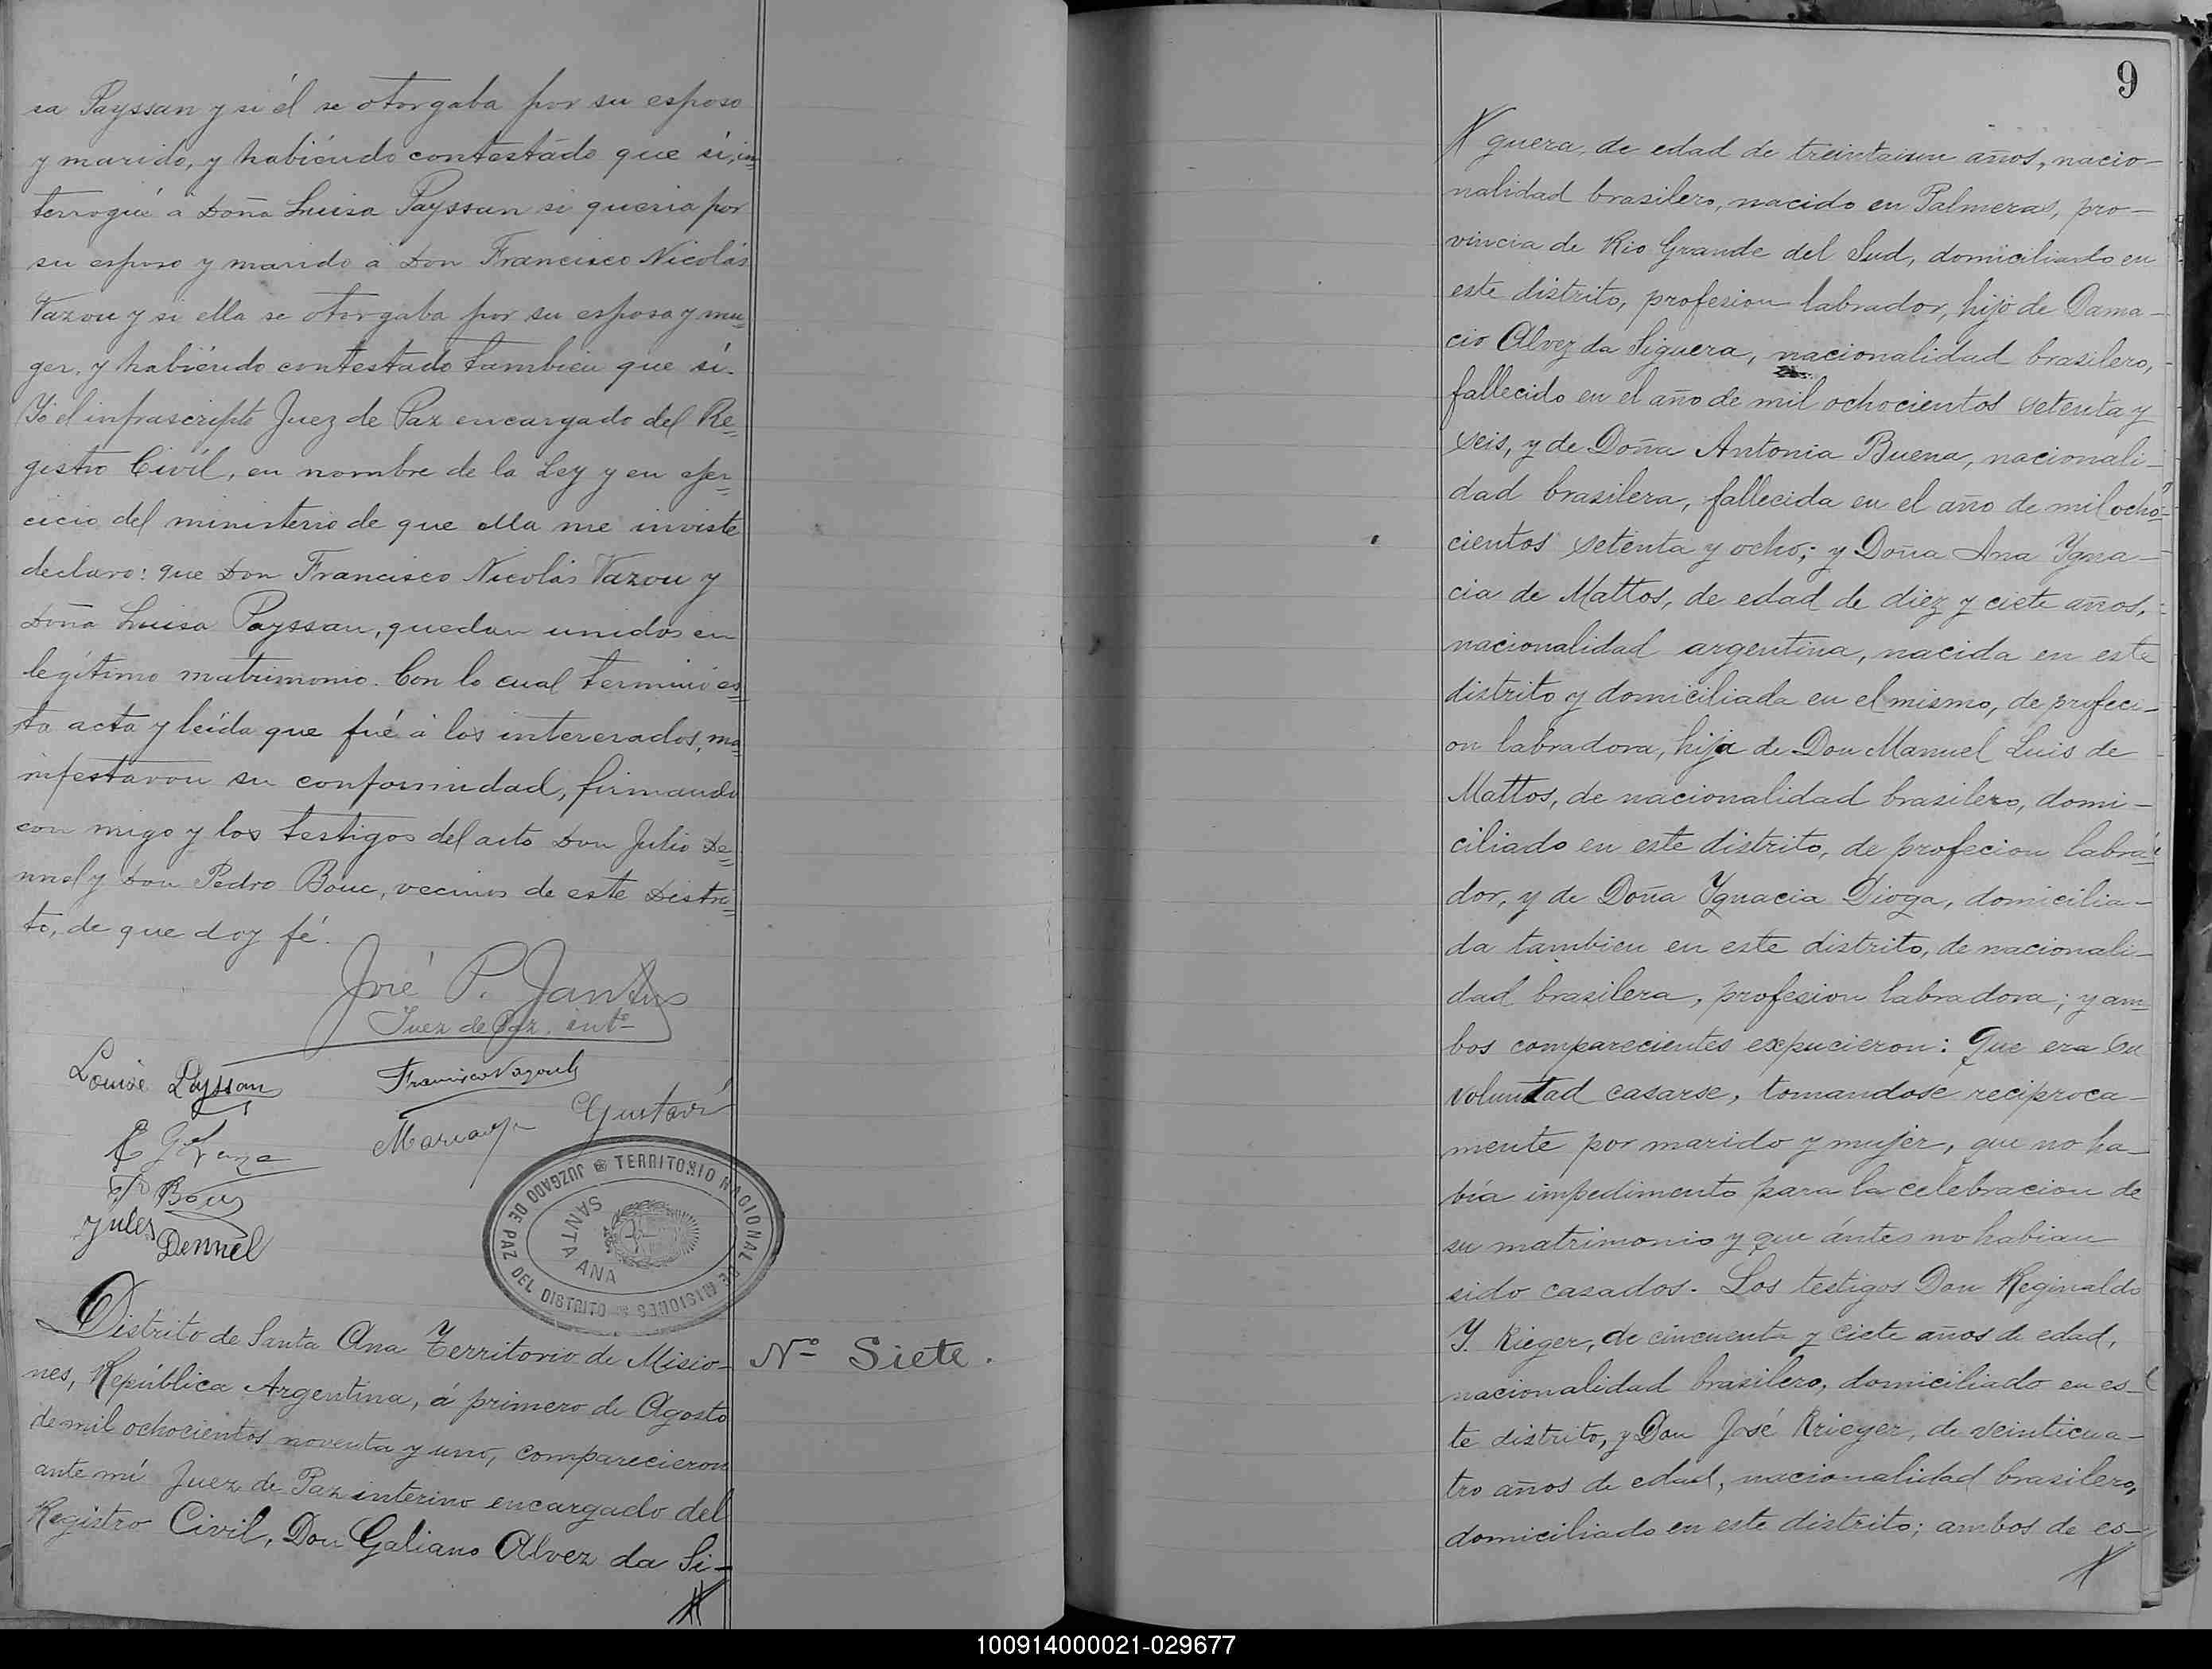 sa Payssan y si él se otorgaba por su esposo
y marido, y habiéndo contestado que sí, in=
terrogué á Doña Luisa Payssan si queria por
su esposo y marido á Don Francisco Nicolás
Vazou y si ella se otorgaba por su esposa y mu=
ger, y habiéndo contestado tambien que sí.
Yo el infrascripto Juez de Paz encargado del Re=
gistro Civíl, en nombre de la Ley y en ejer=
cicio del ministerio de que ella me inviste
declaro: que Don Francisco Nicolás Vazou y
Doña Luisa Payssan, quedan unidos en
legítimo matrimonio. Con lo cual terminó es=
ta acta y leída que fué á los interesados, ma=
nifestaron su conformidad, firmando
con migo y los testigos del acto Don Julio De=
nnel y Don Pedro Bouc, vecinos de este Distri=
to, de que doy fé.
José P.
Juez de Paz. intº
Louise Payssan
Francisco
Gustavi
Jules Dennel
JUZGADO DE PAZ DEL DISTRITO
TERRITORIO NACIONAL DE MISIONES
SANTA ANA
Distrito de Santa Ana Territorio de Misio-
nes, República Argentina, á primero de Agosto
de mil ochocientos noventa y uno, comparecieron
ante mi Juez de Paz interino encargado del
Registro Civil, Don Galiano Alvez da Si-
Nº Siete.
9
guera, de edad de treintaiun años, nacio-
nalidad brasilero, nacido en Palmeras, pro-
vincia de Rio Grande del Sud, domiciliado en
este distrito, profesion labrador, hijo de Dama-
cio Alvez da Siguera, nacionalidad brasilero,
fallecido en el año de mil ochocientos setenta y
seis, y de Doña Antonia Buena, nacionali-
dad brasilera, fallecida en el año de mil ocho-
cientos setenta y ocho; y Doña Ana Ygna-
cia de Mattos, de edad de diez y ciete años,
nacionalidad argentina, nacida en este
distrito y domiciliada en el mismo, de profeci-
on labradora, hija de Don Manuel Luis de
Mattos, de nacionalidad brasilero, domi-
ciliado en este distrito, de profecion labra-
dor, y de Doña Ygnacia Dioga, domicilia-
da tambien en este distrito, de nacionali-
dad brasilera, profesion labradora; y am-
bos comparecientes expucieron: Que era su
voluntad casarse, tomandose reciproca-
mente por marido y mujer, que no ha-
bía impedimento para la celebracion de
su matrimonio y que ántes no habian
sido casados. Los testigos Don Reginaldo
Y. Krieger, de cincuenta y ciete años de edad,
nacionalidad brasilero, domiciliado en es-
te distrito, y Don José Krieger, de veinticua-
tro años de edad, nacionalidad brasilero,
domiciliado en este distrito; ambos de es-
100914000021-029677